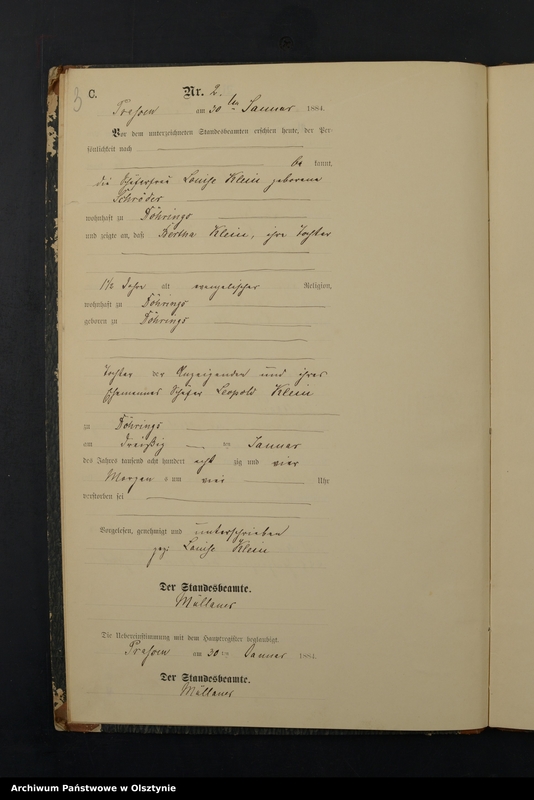 3
C.
Nr. 2.
am 30 ten Januar 1884.
Vor dem unterzeichneten Standesbeamten erschien heute, der Per-
sönlichkeit nach
be kannt,
die Schäferfrau Louise Klein geborene
Schröder
wohnhaft zu Döhrings
und zeigte an, daß Bertha Klein, ihre Tochter
1½ Jahr alt evangelischer Religion,
wohnhaft zu Döhrings
geboren zu Döhrings
Tochter der Anzeigenden und ihres
Ehemannes Schäfer Leopold Klein
zu Döhrings
am dreißig ten Januar
des Jahres tausend acht hundert acht zig und vier
Morgen s um vier Uhr
verstorben sei
Vorgelesen, genehmigt und unterschrieben
gez: Louise Klein
Der Standesbeamte.
Die Uebereinstimmung mit dem Hauptregister beglaubigt.
am 30 ten Januar 1884.
Der Standesbeamte.
Archiwum Państwowe w Olsztynie